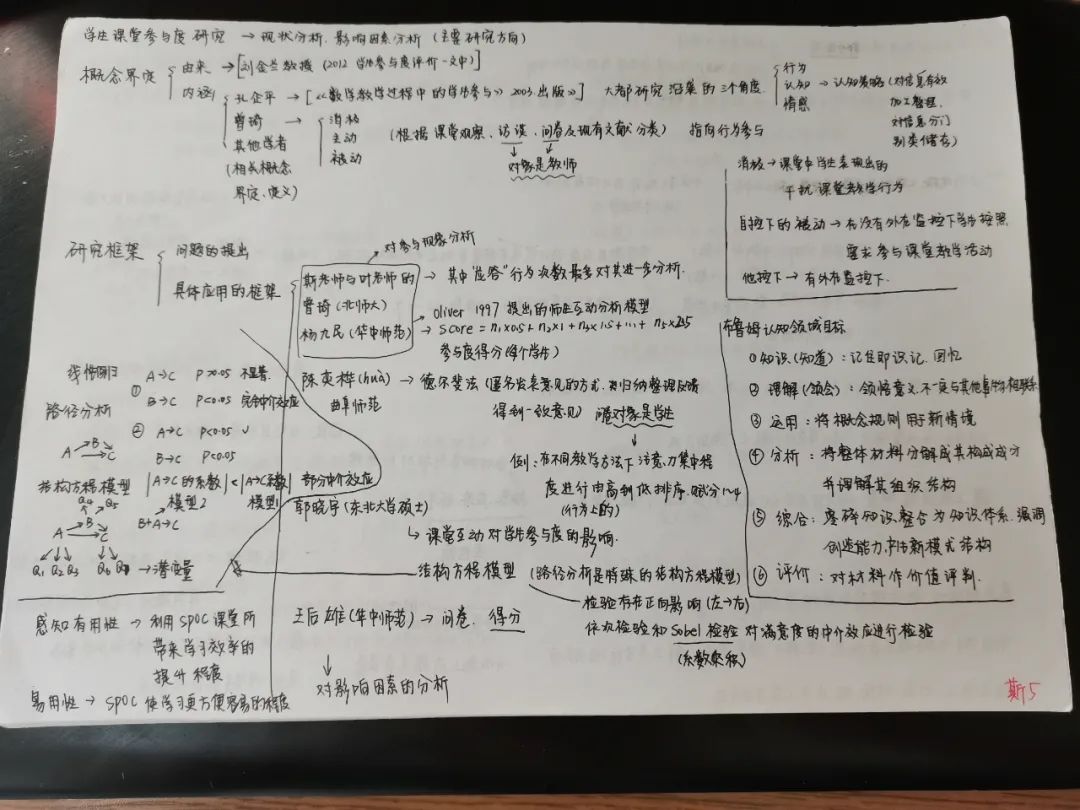 学生课堂参与度研究 → 现状分析、影响因素分析 (主要研究方向)
概念界定
由来 → [刘金兰教授 (2012 学生参与度评价一文中)]
内涵
孔企平 → [《数学教学过程中的学生参与》 2003出版》] 大都研究沿袭的三个角度
行为
认知 → 认知策略 (对信息有效
加工整理,
对信息分门
别类储存)
情感
曾琦 → 消极
主动
被动
(根据课堂观察、访谈、问卷及现有文献分类) 指向行为参与
对象是教师
其他学者
(相关概念
界定、定义)
消极 → 课堂中学生表现出的
干扰课堂教学行为
自控下的被动 → 在没有外在监控下学生按照
要求参与课堂教学活动
他控下 → 有外在监控下.
研究框架
问题的提出
具体应用的框架
对参与现象分析
斯老师与叶老师的 → 其中"应答"行为次数最多对其进一步分析.
曾琦(北师大)
杨九民(华中师范)
oliver 1997 提出的师生互动分析模型
→ score = n₁×0.5 + n₂×1 + n₃×1.5 + … + n₅×2.5
参与度得分(每个学生)
陈奕桦(huà) → 德尔斐法 (匿名发表意见的方式,对归纳整理反馈
曲阜师范
得到一致意见) 问卷对象是学生
例: 在不同教学方法下注意力集中程
度进行由高到低排序,赋分1~4
(行为上的)
郭晓宇(东北大学硕士)
↳ 课堂互动对学生参与度的影响.
结构方程模型 (路径分析是特殊的结构方程模型)
检验存在正向影响 (左→右)
依次检验和Sobel检验 对满意度的中介效应进行检验
(系数乘积)
王后雄(华中师范) → 问卷. 得分
对影响因素的分析
布鲁姆认知领域目标
①知识(知道): 记住即识记、回忆
② 理解(领会): 领悟意义,不一定与其他事物相联系
③ 运用: 将概念规则用于新情境
④ 分析: 将整体材料分解成其构成成分
并理解其组织结构
⑤ 综合: 零碎知识整合为知识体系.强调
创造能力,产生新模式结构
⑥ 评价: 对材料作价值评判.
线性回归
① A→C P>0.05 不显著.
B→C P<0.05 完全中介效应
路径分析
A → B → C
② A→C P<0.05 ✓
B→C P<0.05
结构方程模型
|A→C的系数| < |A→C系数| 部分中介效应
模型2 模型1
B+A→C
Q₄ Q₅
A → B → C
Q₁ Q₂ Q₃ Q₆ Q₇ → 潜变量
感知有用性 → 利用SPOC课堂所
带来学习效率的
提升程度
易用性 → SPOC 使学习更方便容易的程度
斯5